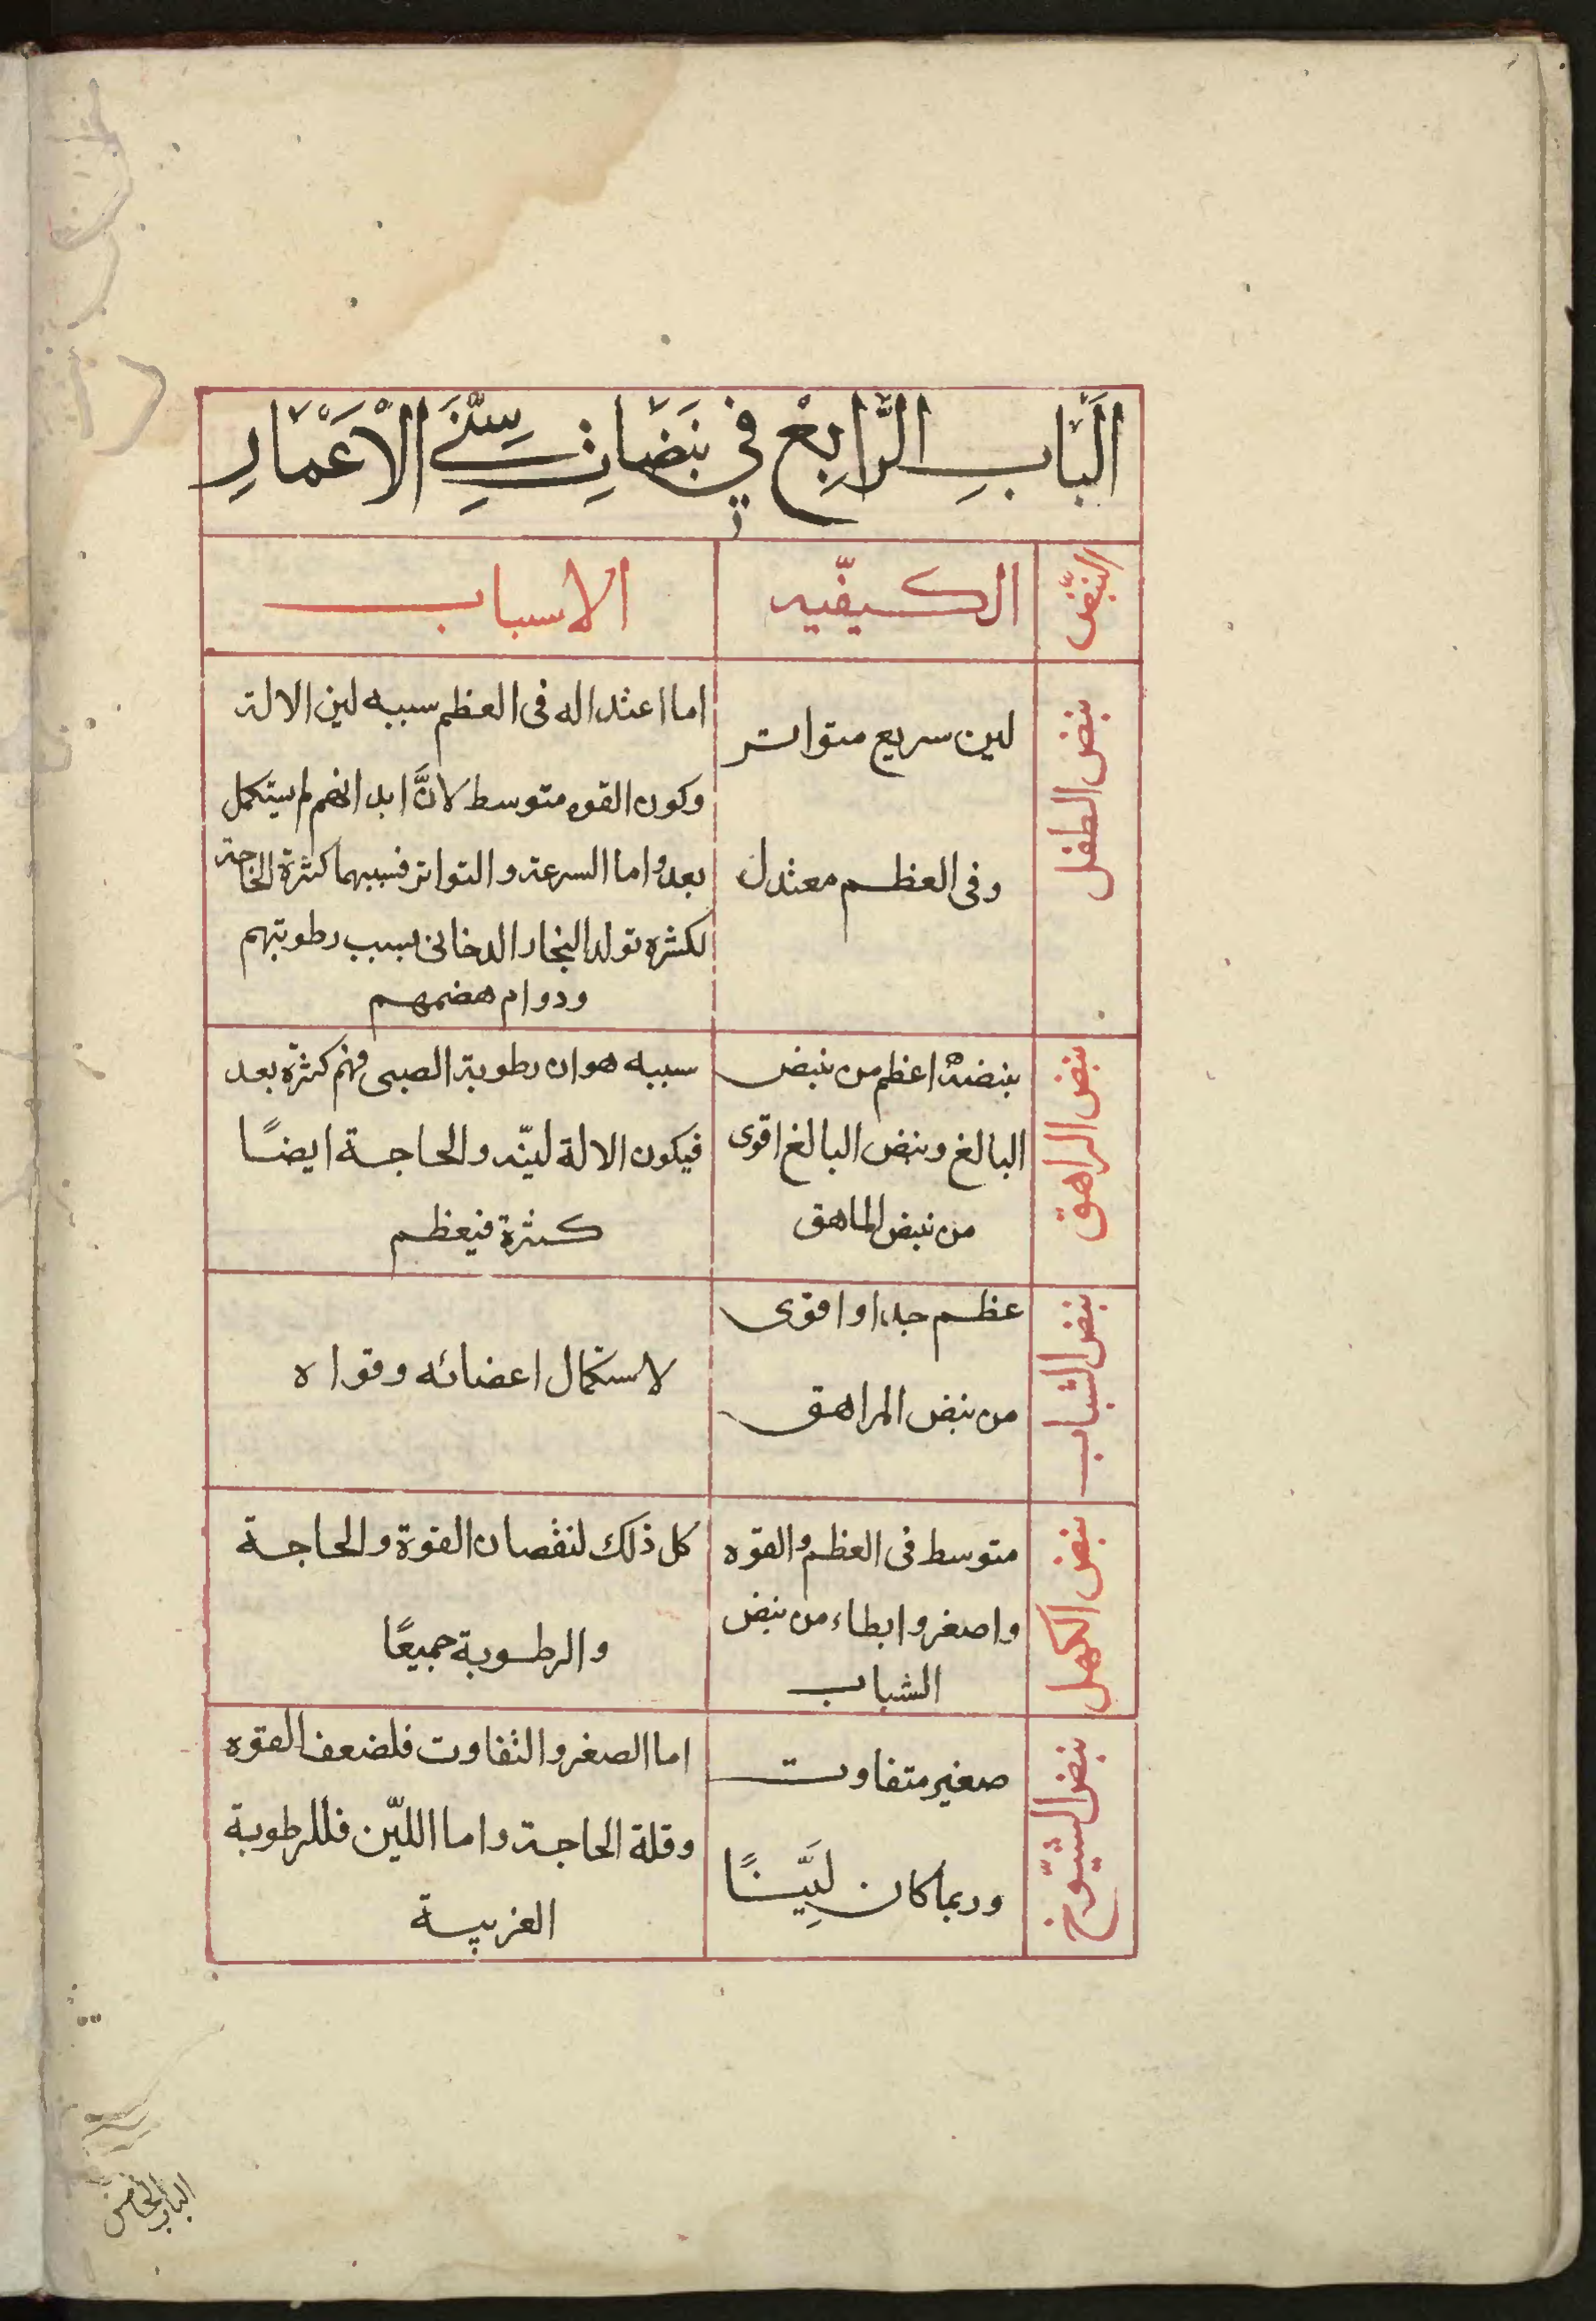 اَلْبَابِ الرَّابِعْ في نَبَضَاتِ سِنّيِ الْاَعْمَارِ
النبّض
الكيفّيه
الاسباب
نبض الطفل
لين سريع متواتر
وفى العظم معتدل
اما اعتداله فى العظم سببه لين الالة
وكون القوه متوسط لانَّ ابدانهم لم يستكمل
بعد واما السرعة والتواتر فسببهما كثرة الحاجة
لكثره تولد البخار الدخانى بسبب رطوبتهم
ودوام هضمهم
نبض الراهق
نبضة اعظم من نبض
البالغ ونبض البالغ اقوى
من نبض الماهق
سببه هو ان رطوبة الصبى فهم كثرة بعد
فيكون الالة لينّه والحاجة ايضًا
كثرة فيعظم
نبض الشباب
عظم جدا واقوى
من نبض المراهق
لاستكمال اعضائه وقواه
نبض الكهل
متوسط فى العظم والقوه
واصغر وابطاء من نبض
الشباب
كل ذلك لنقصان القوة والحاجة
والرطوبة جميعًا
نبض الشيّوخ
صغير متفاوت
وربما كان لَيِّنًا
اما الصغر والتفاوت فلضعف القوه
وقلة الحاجة واما الليّن فللرطوبة
الغريبة
الباب الخامس